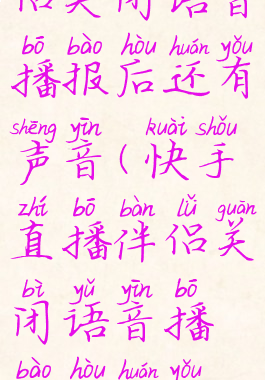 侣关闭语音
bō bào hòu huán yǒu
播报后还有
shēng yīn kuài shǒu
声音(快手
zhí bō bàn lǚ guān
直播伴侣关
bì yǔ yīn bō
闭语音播
bào hòu huán yǒu